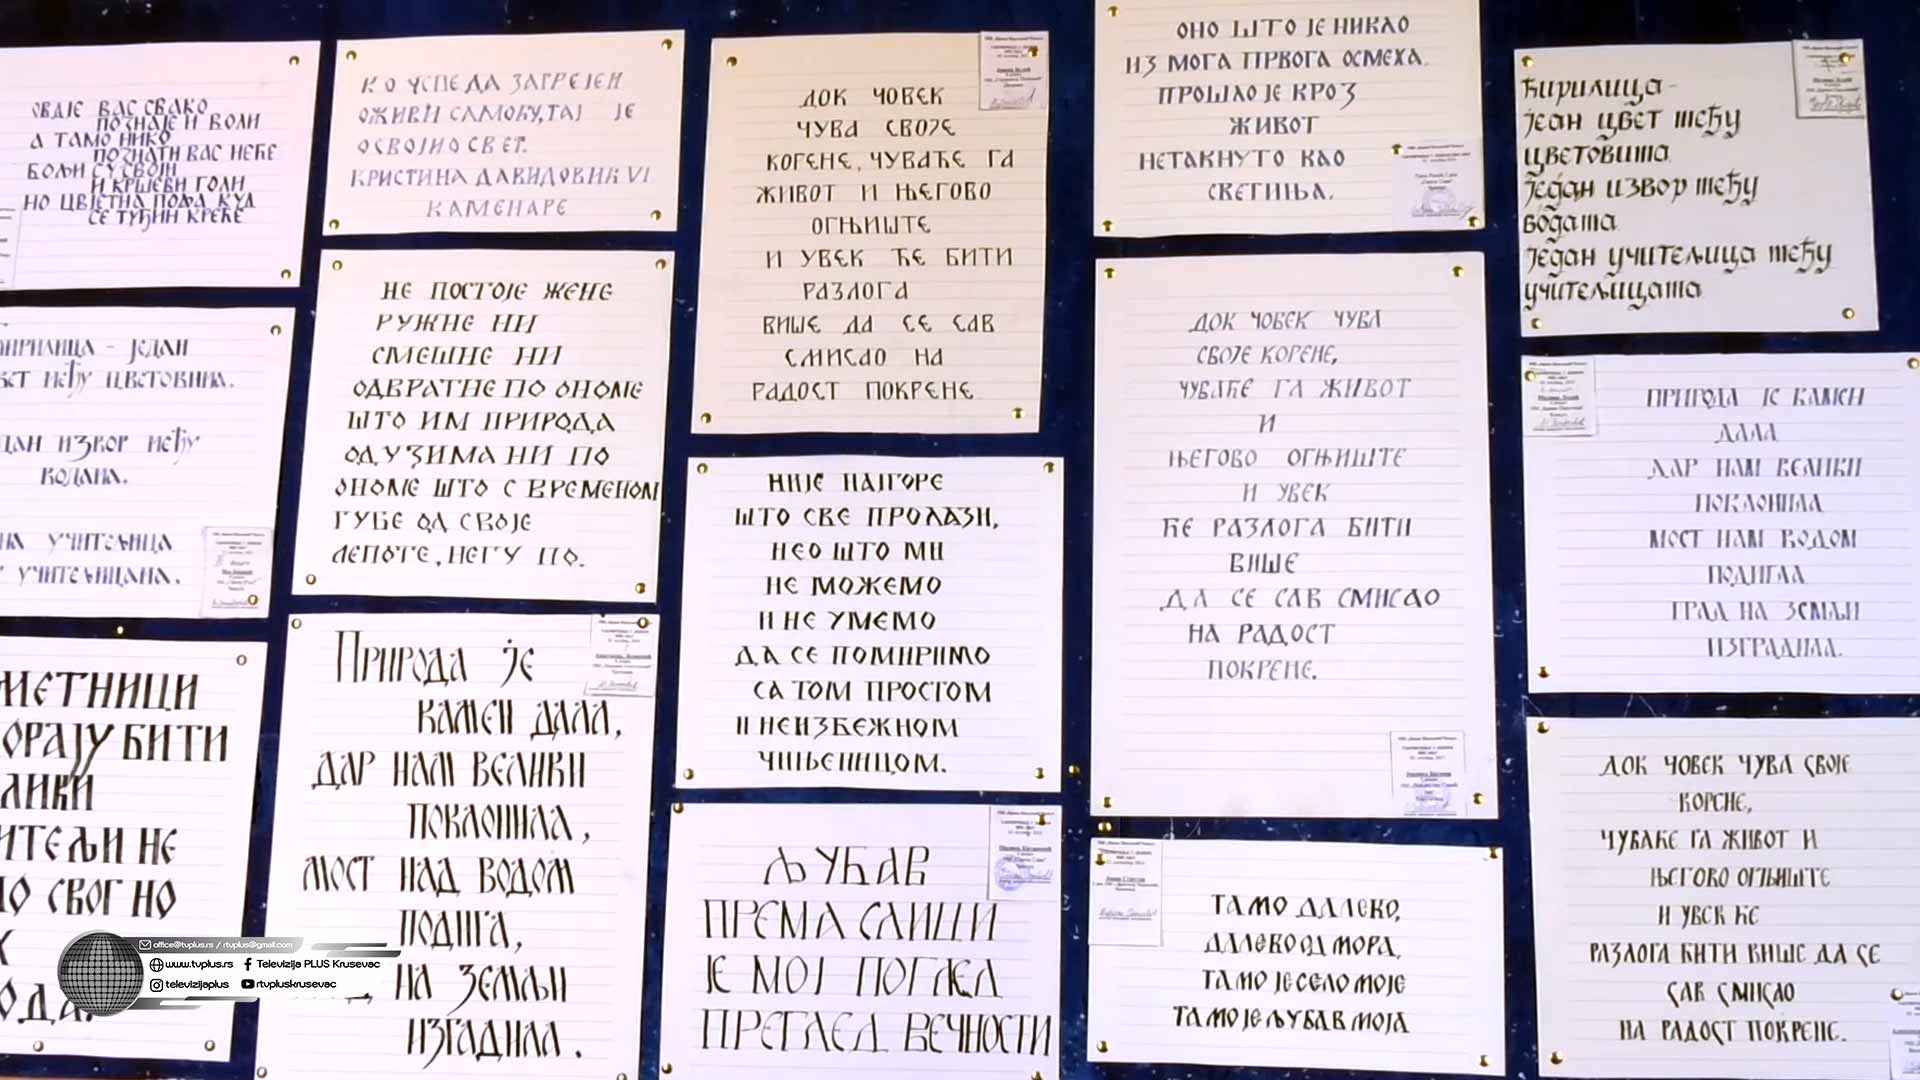 ОВДЈЕ ВАС СВАКО
ПОЗНАЈЕ И ВОЛИ
А ТАМО НИКО
ПОЗНАТИ ВАС НЕЋЕ
БОЉИ СУ СВОЈИ
И КРШЕВИ ГОЛИ
НО ЦВЈЕТНА ПОЉА КУД
СЕ ТУЂИН КРЕЋЕ
ЋИРИЛИЦА - ЈЕДАН
МЕЂУ ЦВЕТОВИМА.
ИЗВОР МЕЂУ
ВОДАМА.
УЧИТЕЉИЦА
УЧИТЕЉИЦАМА.
МЕТНИЦИ
ОРАЈУ БИТИ
ЛИКИ
ИТЕЉИ НЕ
СВОГ НО
КО УСПЕ ДА ЗАГРЕЈЕ И
ОЖИВИ САМОЋУ, ТАЈ ЈЕ
ОСВОЈИО СВЕТ.
КРИСТИНА ДАВИДОВИЋ VI
КАМЕНАРЕ
НЕ ПОСТОЈЕ ЖЕНЕ
РУЖНЕ НИ
СМЕШНЕ НИ
ОДВРАТНЕ ПО ОНОМЕ
ШТО ИМ ПРИРОДА
ОДУЗИМА НИ ПО
ОНОМЕ ШТО С ВРЕМЕНОМ
ГУБЕ ОД СВОЈЕ
ЛЕПОТЕ, НЕГУ ПО.
ПРИРОДА ЈЕ
КАМЕН ДАЛА,
ДАР НАМ ВЕЛИКИ
ПОКЛОНИЛА,
МОСТ НАД ВОДОМ
ПОДИГА,
НА ЗЕМЉИ
ИЗГРАДИЛА.
ДОК ЧОВЕК
ЧУВА СВОЈЕ
КОРЕНЕ, ЧУВАЋЕ ГА
ЖИВОТ И ЊЕГОВО
ОГЊИШТЕ
И УВЕК ЋЕ БИТИ
РАЗЛОГА
ВИШЕ ДА СЕ САВ
СМИСАО НА
РАДОСТ ПОКРЕНЕ
НИЈЕ НАЈГОРЕ
ШТО СВЕ ПРОЛАЗИ,
НЕО ШТО МИ
НЕ МОЖЕМО
И НЕ УМЕМО
ДА СЕ ПОМИРИМО
СА ТОМ ПРОСТОМ
И НЕИЗБЕЖНОМ
ЧИЊЕНИЦОМ.
ЉУБАВ
ПРЕМА СЛИЦИ
ЈЕ МОЈ ПОГЛЕД
ПРЕГЛЕД ВЕЧНОСТИ
ОНО ШТО ЈЕ НИКЛО
ИЗ МОГА ПРВОГА ОСМЕХА.
ПРОШЛО ЈЕ КРОЗ
ЖИВОТ
НЕТАКНУТО КАО
СВЕТИЊА.
ДОК ЧОВЕК ЧУВА
СВОЈЕ КОРЕНЕ,
ЧУВАЋЕ ГА ЖИВОТ
И
ЊЕГОВО ОГЊИШТЕ
И УВЕК
ЋЕ РАЗЛОГА БИТИ
ВИШЕ
ДА СЕ САВ СМИСАО
НА РАДОСТ
ПОКРЕНЕ.
ТАМО ДАЛЕКО,
ДАЛЕКО ОД МОРА,
ТАМО ЈЕ СЕЛО МОЈЕ
ТАМО ЈЕ ЉУБАВ МОЈА
Ћирилица-
јеан цвет међу
цветовима
један извор међу
водама
један учитељица међу
учитељицама
ПРИРОДА ЈЕ КАМЕН
ДАЛА
ДАР НАМ ВЕЛИКИ
ПОКЛОНИЛА
МОСТ НАМ ВОДОМ
ПОДИГЛА
ГРАД НА ЗЕМЉИ
ИЗГРАДИЛА.
ДОК ЧОВЕК ЧУВА СВОЈЕ
КОРЕНЕ,
ЧУВАЋЕ ГА ЖИВОТ И
ЊЕГОВО ОГЊИШТЕ
И УВЕК ЋЕ
РАЗЛОГА БИТИ ВИШЕ ДА СЕ
САВ СМИСАО
НА РАДОСТ ПОКРЕНЕ.
office@tvplus.rs / rtvplus@gmail.com
www.tvplus.rs Televizija PLUS Krusevac
televizijaplus rtvpluskrusevac